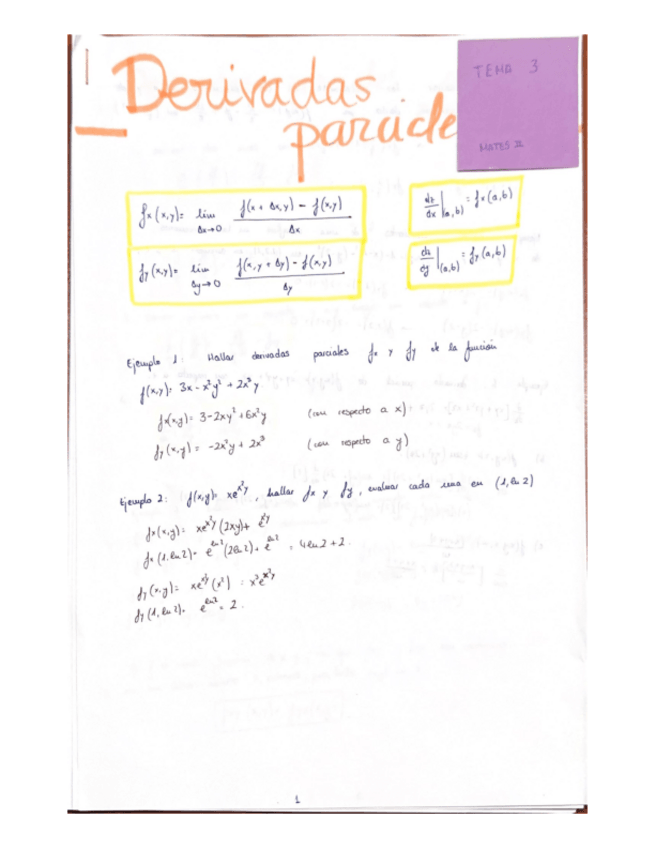 Derivadas
parciale
TEMA 3
MATES II
fx(x,y)= lim Δx→0 f(x + Δx,y) − f(x,y) / Δx
dz/dx |(a,b) = fx(a,b)
fy(x,y)= lim Δy→0 f(x,y + Δy) − f(x,y) / Δy
dz/dy |(a,b) = fy(a,b)
Ejemplo 1: Hallar derivadas parciales fx y fy de la función
f(x,y): 3x − x²y² + 2x³y
fx(x,y)= 3−2xy²+6x²y (con respecto a x)
fy(x,y)= −2x²y + 2x³ (con respecto a y)
Ejemplo 2: f(x,y)= xe^x²y, hallar fx y fy, evaluar cada una en (1,ln2)
fx(x,y)= xe^x²y (2xy)+ e^x²y
fx(1,ln2)= e^ln2 (2ln2)+ e^ln2 = 4ln2+2.
fy(x,y)= xe^x²y (x²) = x³e^x²y
fy(1,ln2)= e^ln2 = 2.
1